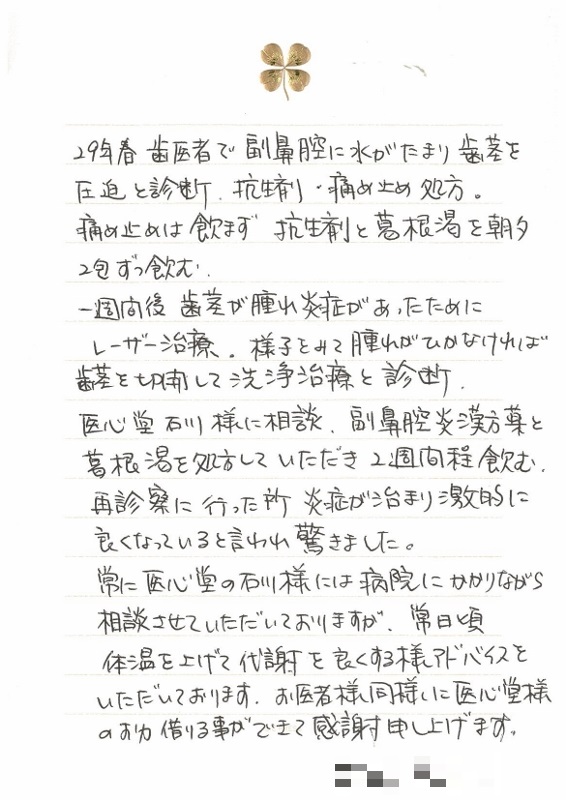 29年春 歯医者で 副鼻腔に水がたまり 歯茎を
圧迫と診断. 抗生剤・痛め止め処方。
痛め止めは飲まず 抗生剤と葛根湯を朝夕
2包ずつ飲む.
一週間後 歯茎が腫れ炎症があったために
レーザー治療. 様子をみて腫れがひかなければ
歯茎を切開して洗浄治療と診断.
医心堂 石川様に相談. 副鼻腔炎漢方薬と
葛根湯を処方していただき 2週間程飲む.
再診察に行った所 炎症が治まり激的に
良くなっていると言われ驚きました。
常に医心堂の石川様には病院にかかりながら
相談させていただいておりますが、常日頃
体温を上げて代謝を良くする様アドバイスを
いただいております. お医者様同様に医心堂様
のお力借りる事ができて感謝申し上げます。